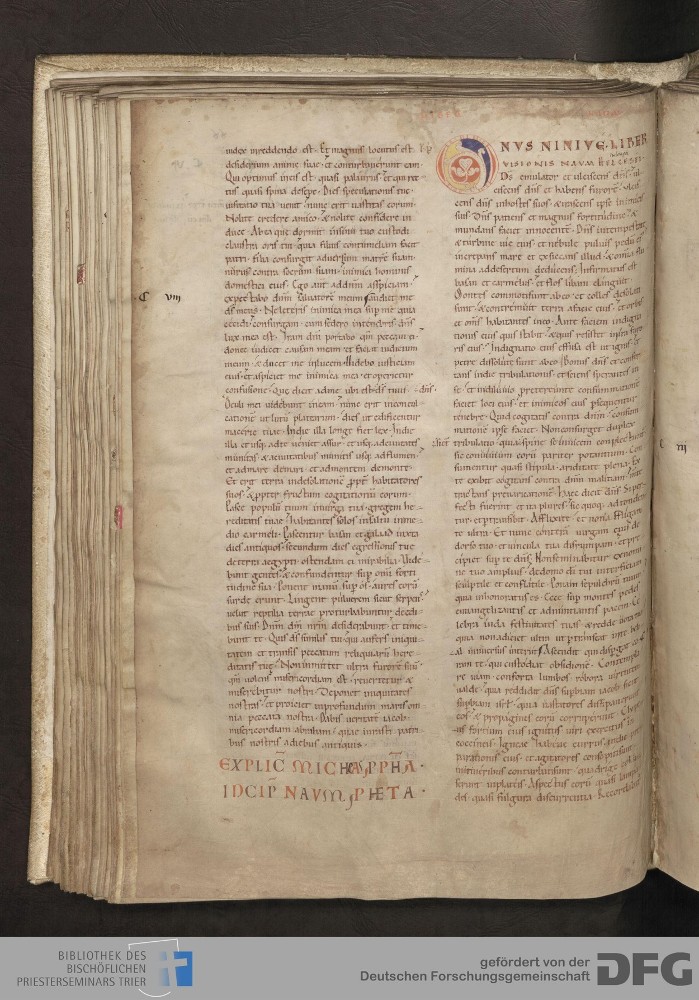 iudex inreddendo est. Et magnus locutus est
desiderium anime sue. et conturbaverunt eam.
Qui optimus in eis est quasi paliurus. et qui rec
tus quasi spina de sepe. Dies speculationis tue
visitatio tua venit. nunc erit vastitas eorum.
Nolite credere amico. & nolite confidere in
duce. Ab ea que dormit in sinu tuo custodi
claustra oris tui. quia filius contumeliam facit
patri. filia consurgit adversus matrē suam.
nurus contra socrum suam. inimici hominis
domestici eius. Ego aut ad dnm aspiciam.
expectabo dm salvatorē meum. audiet me
ds meus. Ne leteris inimica mea sup me quia
cecidi. consurgam. cum sedero in tenebris dns
lux mea est. Iram dni portabo qm peccavi ei.
donec iudicet causam meam et faciat iudicium
meum. educet me in lucem. videbo iusticiam
eius. et aspiciet me inimica mea. et operietur
confusione. Que dicit ad me. ubi est ds tuus.
Oculi mei videbunt in eam. nunc erit in concul
catione ut lutū platearum. dies ut edificentur
macerie tue. In die illa longe fiet lex. In die
illa et usq; ad te veniet assur. et usq; ad civitates
munitas. & a civitatibus munitis usq; ad flumen.
et ad mare de mari. et ad montem de monte.
Et erit terra in desolatione ppt habitatores
suos. & ppter fructum cogitationū eorum.
Pasce populū tuum in virga tua. gregem he
reditatis tuae. habitantes solos in saltu in me
dio carmeli. Pascentur basan et galaad iuxta
dies antiquos. secundum dies egressionis tue
de terra aegypti. ostendam ei mirabilia. Vide
bunt gentes. & confundentur sup omni forti
tudine sua. Ponent manū sup os. aures eorū
surde erunt. Lingent pulverem sicut serpen
velut reptilia terrae proturbabuntur de edi
bus suis. Dnm dm nrm desiderabunt. et time
bunt te. Quis ds similis tui. qui aufers iniqui
tatem et transfers peccatum reliquiarū here
ditatis tue. Non inmittet ultra furorē suū
qm volens misericordiam est. revertetur &
miserebitur nostri. Deponet iniquitates
nostras. et proiciet in profundum maris om
nia peccata nostra. Dabis veritatē iacob.
misericordiam abraham. quae iurasti patri
bus nostris a diebus antiquis.
EXPLIC MICHEAS PPHA.
INCIP NAVM PPHETA.
C viii
dns.
ONVS NINIVE. LIBER
VISIONIS NAVM HELCESEI.
Ds emulator et ulciscens dns. ul
ciscens dns et habens furorē. ulcis
cens dns in hostes suos. & irascens ipse inimicis
suis. Dns patiens et magnus fortitudine. &
mundans faciet innocentē. Dns in tempestate
& turbine vie eius. et nebule pulvis pedū eius.
increpans mare et exsiccans illud. & omnia flu
mina ad desertum deducens. Infirmatus est
basan et carmelus. et flos libani elanguit.
Montes commoti sunt ab eo. et colles desolati
sunt. & contremuit terra a facie eius. et orbis
et oms habitantes in eo. Ante faciem indigna
tionis eius quis stabit. & quis resistet in ira furo
ris eius. Indignatio eius effusa est ut ignis. et
petre dissolute sunt ab eo. Bonus dns et confor
tans in die tribulationis. et sciens sperantes in
se. et in diluvio pretereunte consummationē
faciet loci eius. et inimicos eius psequentur
tenebre. Quid cogitatis contra dnm. consum
mationē ipse faciet. Non consurget duplex
tribulatio. quia sicut spine se invicem complectuntur
sic convivium eorū pariter potantium. Con
sumentur quasi stipula ariditate plena. Ex
te exibit cogitans contra dnm malitiam. mente
tractans prevaricationē. haec dicit dns. Si per
fecti fuerint et ita plures. sic quoq; adtondentur
tur et ptransibit. Afflixi te et non affligam
te ultra. Et nunc conteram virgam eius de
dorso tuo. et vincula tua disrumpam. et pre
cipiet sup te dns. Non seminabitur ex nomi
ne tuo amplius. de domo di tui interficiam
sculptile et conflatile. Ponam sepulchrū tuum
quia inhonoratus es. Ecce sup montes pedes
evangelizantis et adnuntiantis pacem. Ce
lebra iuda festivitates tuas. & redde vota tua
quia non adiciet ultra ut ptranseat in te beli
al. universus interiit. Ascendit qui dispergat co
ram te. qui custodiat obsidionē. Contemplare
re viam. conforta lumbos. robora virtutem
valde. quia reddidit dns supbiam iacob sicut
supbiam isrl. quia vastatores dissipaverunt
eos. & propagines eorū corruperunt. Clipe
us fortium eius ignitus. viri exercitus in
coccineis. Igneae habenae currus in die prae
parationis eius. et agitatores consopiti sunt.
in itineribus conturbati sunt. quadrige colli
serunt in plateis. Aspectus eorū quasi lampa
des. quasi fulgura discurrentia. Recordabitur
C iii
BIBLIOTHEK DES
BISCHÖFLICHEN
PRIESTERSEMINARS TRIER
gefördert von der
Deutschen Forschungsgemeinschaft
DFG